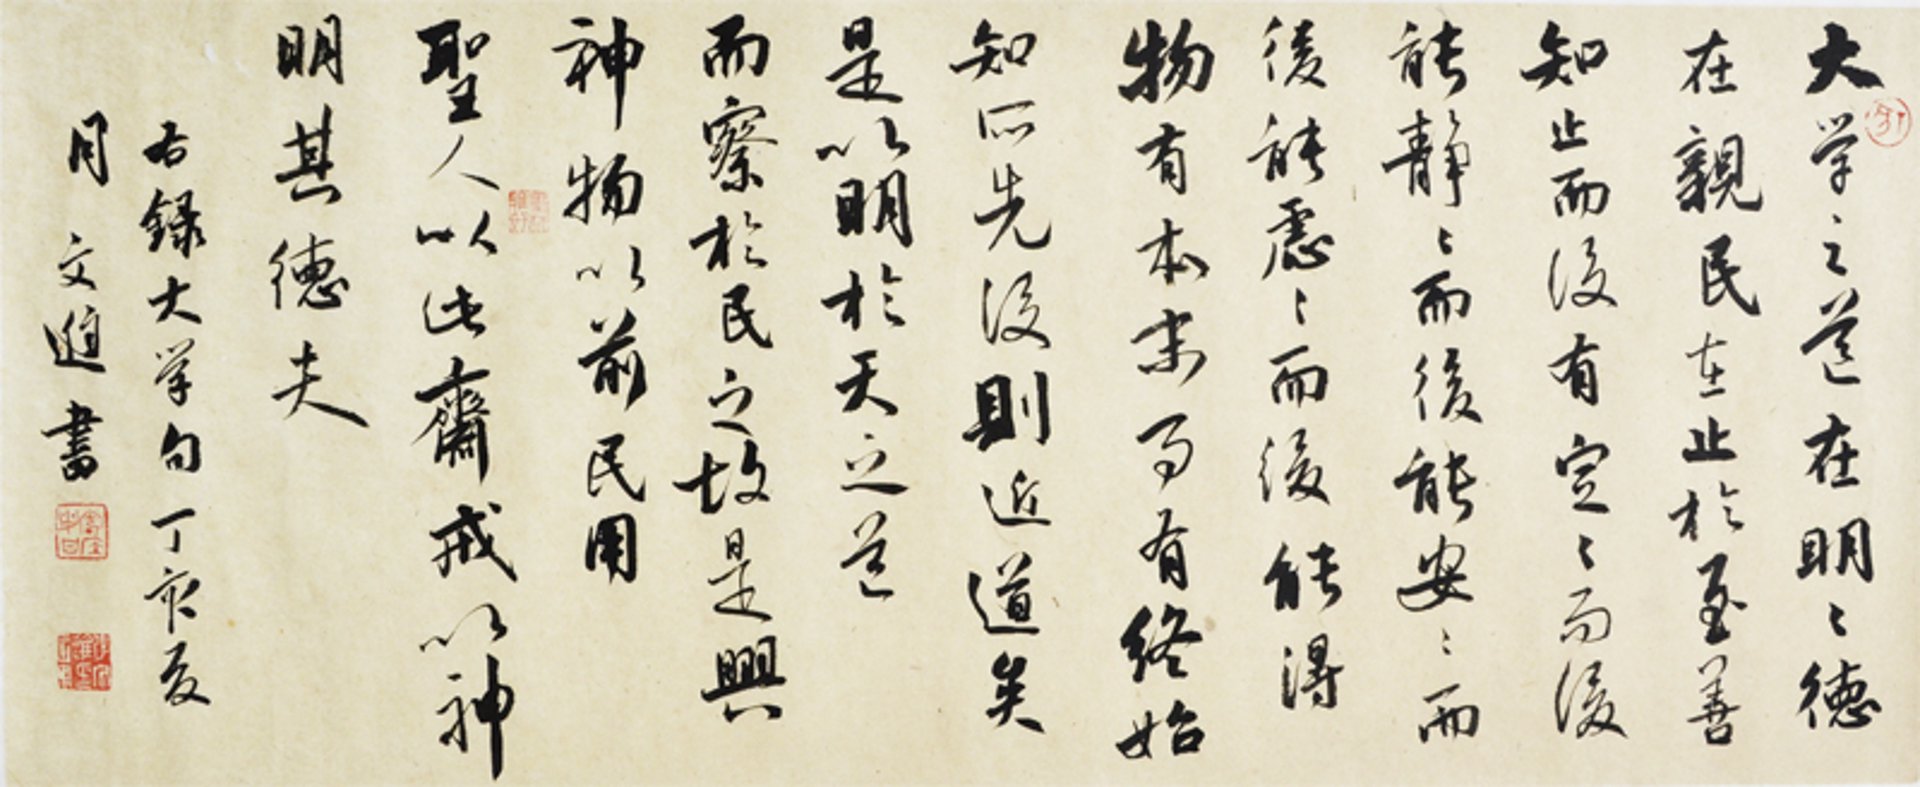 大学之道在明〻德
在親民在止於至善
知止而後有定〻而後
能靜〻而後能安〻而
後能慮〻而後能得
物有本末事有終始
知所先後則近道矣
是以明於天之道
而察於民之故是興
神物以前民用
聖人以此齋戒以神
明其德夫
右錄大学句丁亥夏
月文迪書